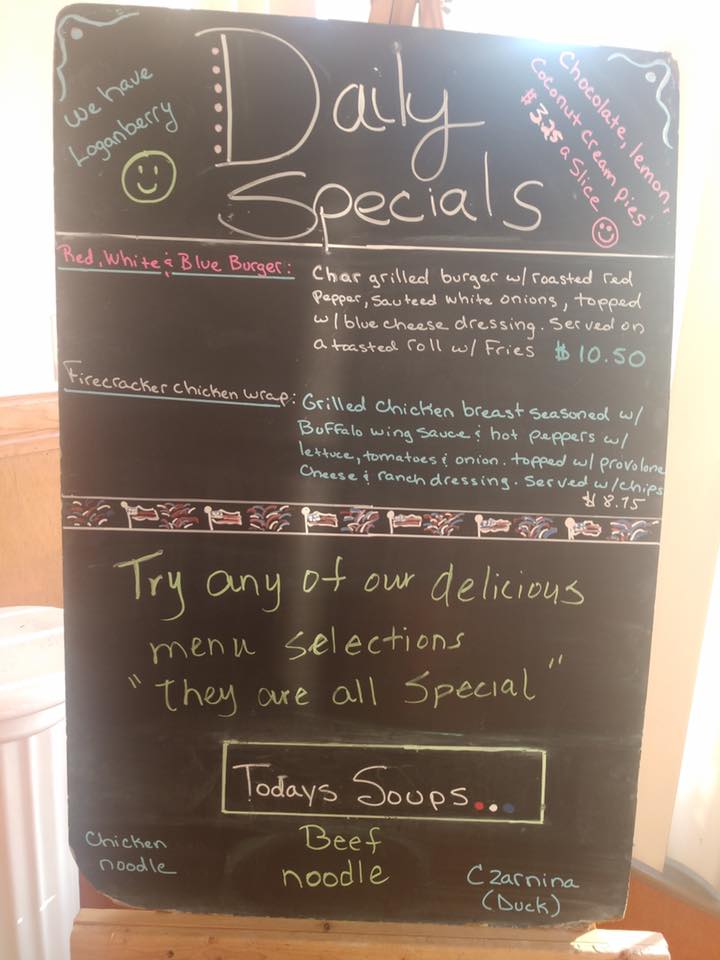 We have
Loganberry
Daily
Specials
Chocolate, lemon,
Coconut cream pies
$3.25 a slice
Red, White & Blue Burger:
Char grilled burger w/ roasted red
Pepper, Sauteed white onions, topped
w/ blue cheese dressing. Served on
a toasted roll w/ Fries $10.50
Firecracker Chicken wrap:
Grilled chicken breast seasoned w/
Buffalo wing sauce & hot peppers w/
lettuce, tomatoes & onion. topped w/ provolone
Cheese & ranch dressing. Served w/ chips
$8.75
Try any of our delicious
menu selections
"they are all Special"
Todays Soups...
Chicken
noodle
Beef
noodle
Czarnina
(Duck)